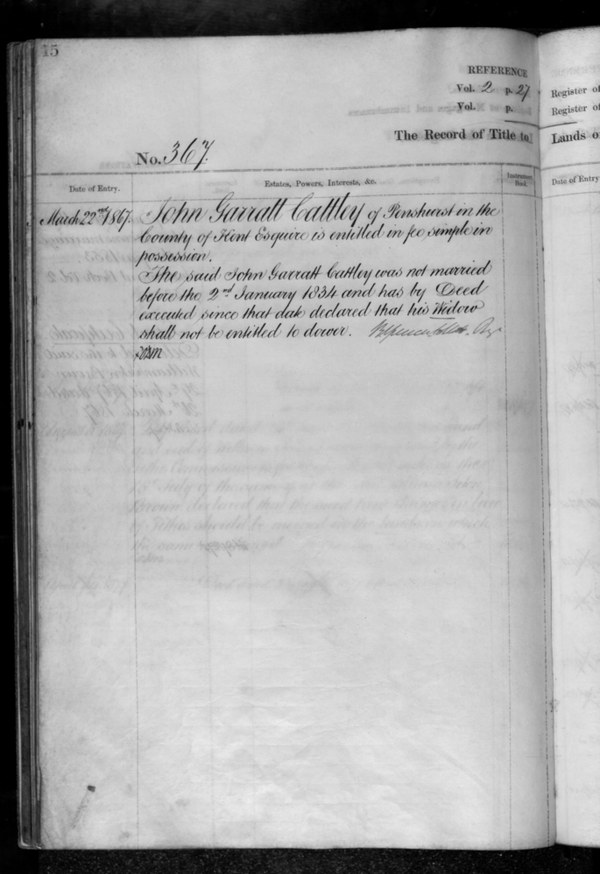 15
REFERENCE
Vol. 2 p. 27
Vol. p.
The Record of Title to
No. 367.
Date of Entry.
Estates, Powers, Interests, &c.
Instrument
Deed.
March 22nd 1867.
John Garratt Cattley of Penshurst in the
County of Kent Esquire is entitled in fee simple in
possession.
The said John Garratt Cattley was not married
before the 2nd January 1834 and has by Deed
executed since that date declared that his Widow
shall not be entitled to dower.
Register of
Register of
Lands o
Date of Entry